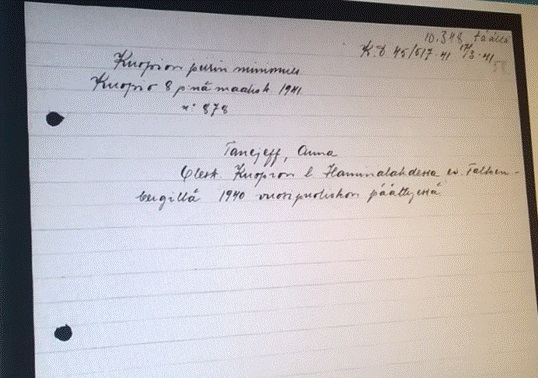 10.348 täällä
K.D. 45/517-41 17/3-41
58
Kuopion piirin nimismies
Kuopio 8 p:nä maalisk. 1941
n:o 878
Tanejeff, Anna
Olesk. Kuopion l. Haminalahdessa ev. Falken-
bergillä 1940 vuosipuoliskon päättyessä